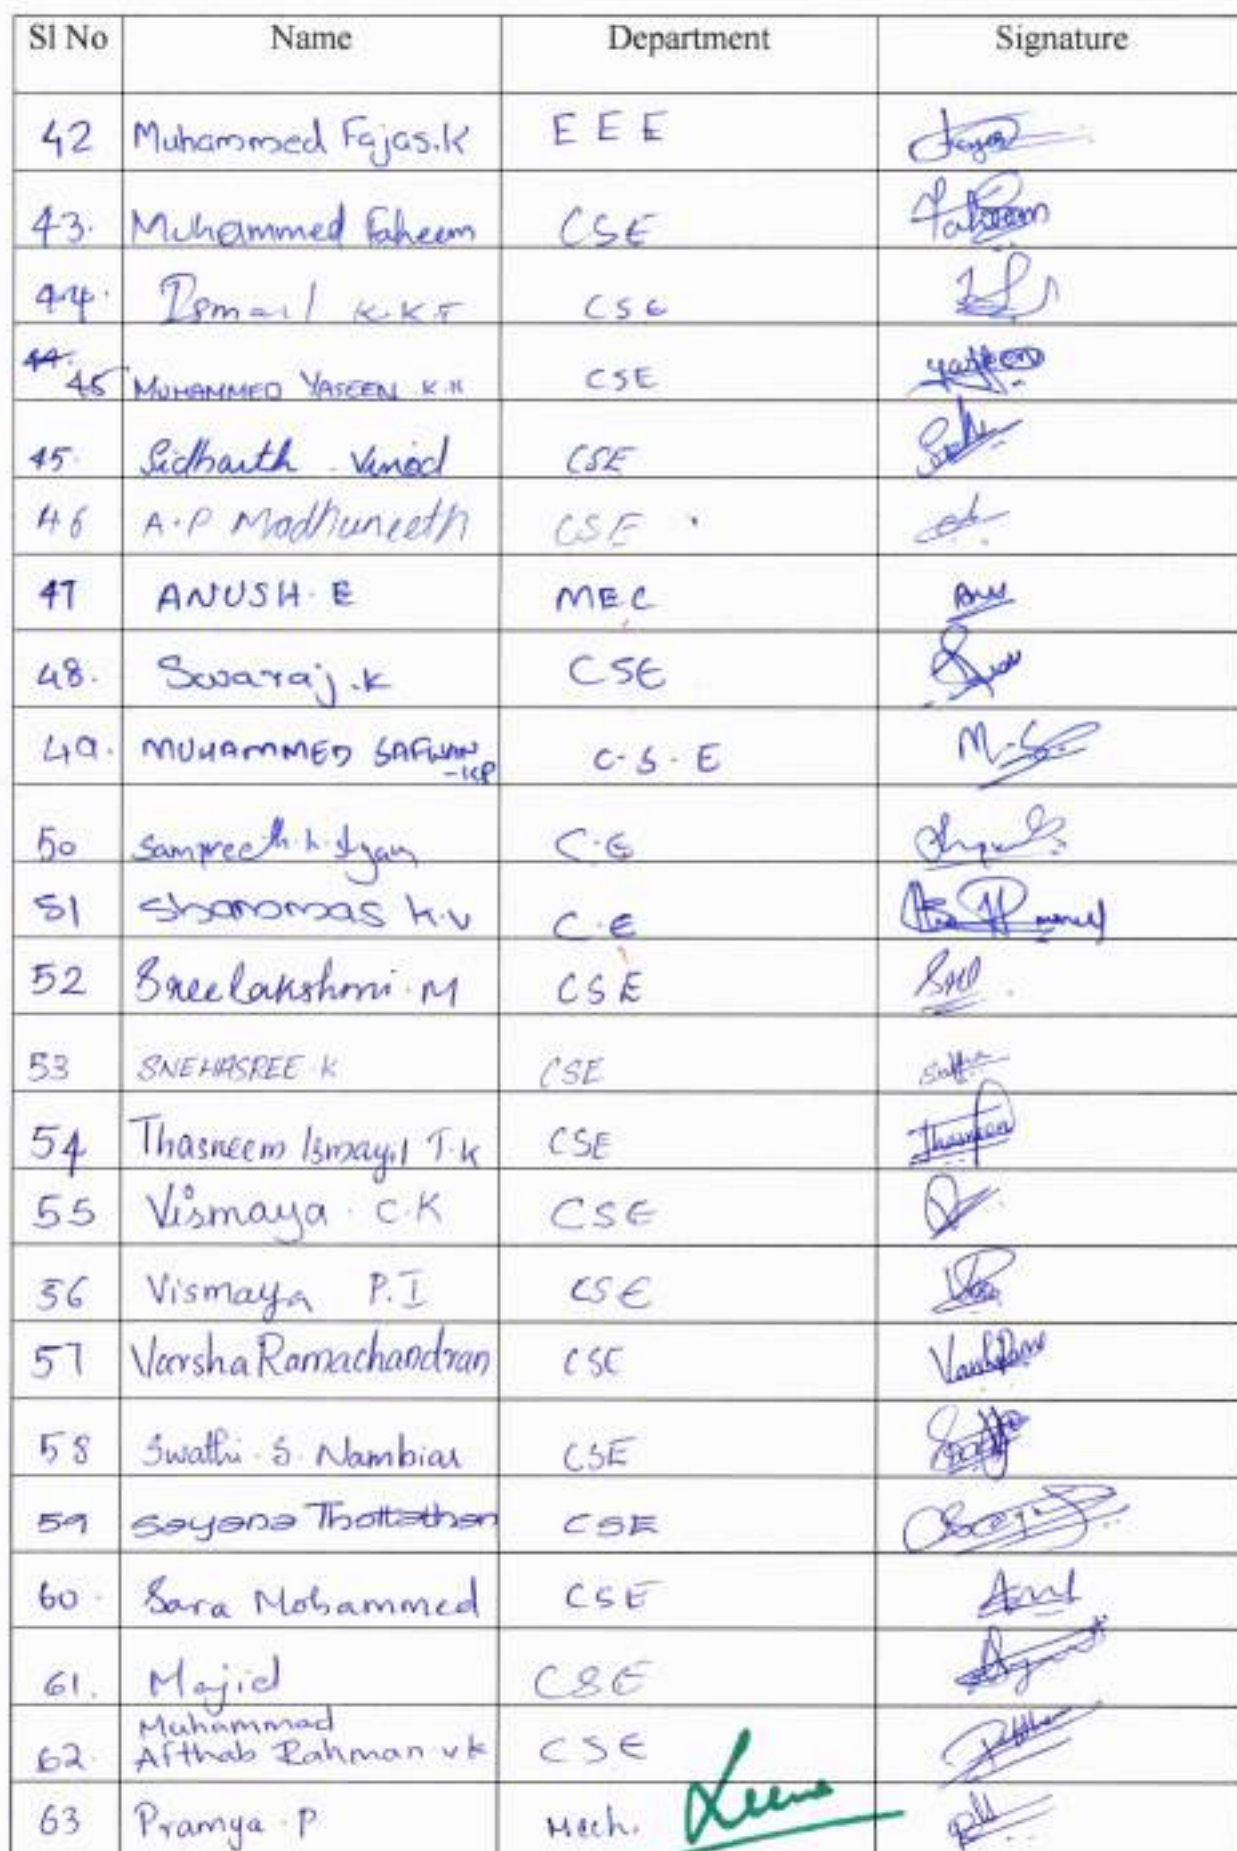 Sl No Name Department Signature
42 Muhammed Fajas.K E E E
43. Muhammed Faheem CSE Faheem
44. Ismail K.K.T CSE
44. 45 MUHAMMED YASEEN K.H CSE yaseen
45. Sidharth Vinod CSE
46 A.P Madhuneeth CSE
47 ANUSH. E MEC
48. Swaraj.K CSE
49. MUHAMMED SAFWAN C.S.E M.S.
-KP
50 Sampreeth. C.E
51 Shanomas K.V C.E
52 Sreelakshmi.M CSE
53 SNEHASREE.K CSE
54 Thasneem Ismayil T.K CSE Thasneem
55 Vismaya. C.K CSE
56 Vismaya P.I CSE
57 Varsha Ramachandran CSE
58 Swathi. S. Nambiar CSE
59 Sayana Thottathan CSE
60. Sara Mohammed CSE
61. Majid CSE
Muhammad
62. Afthab Rahman v k CSE
63 Pramya.P Mech. Leena